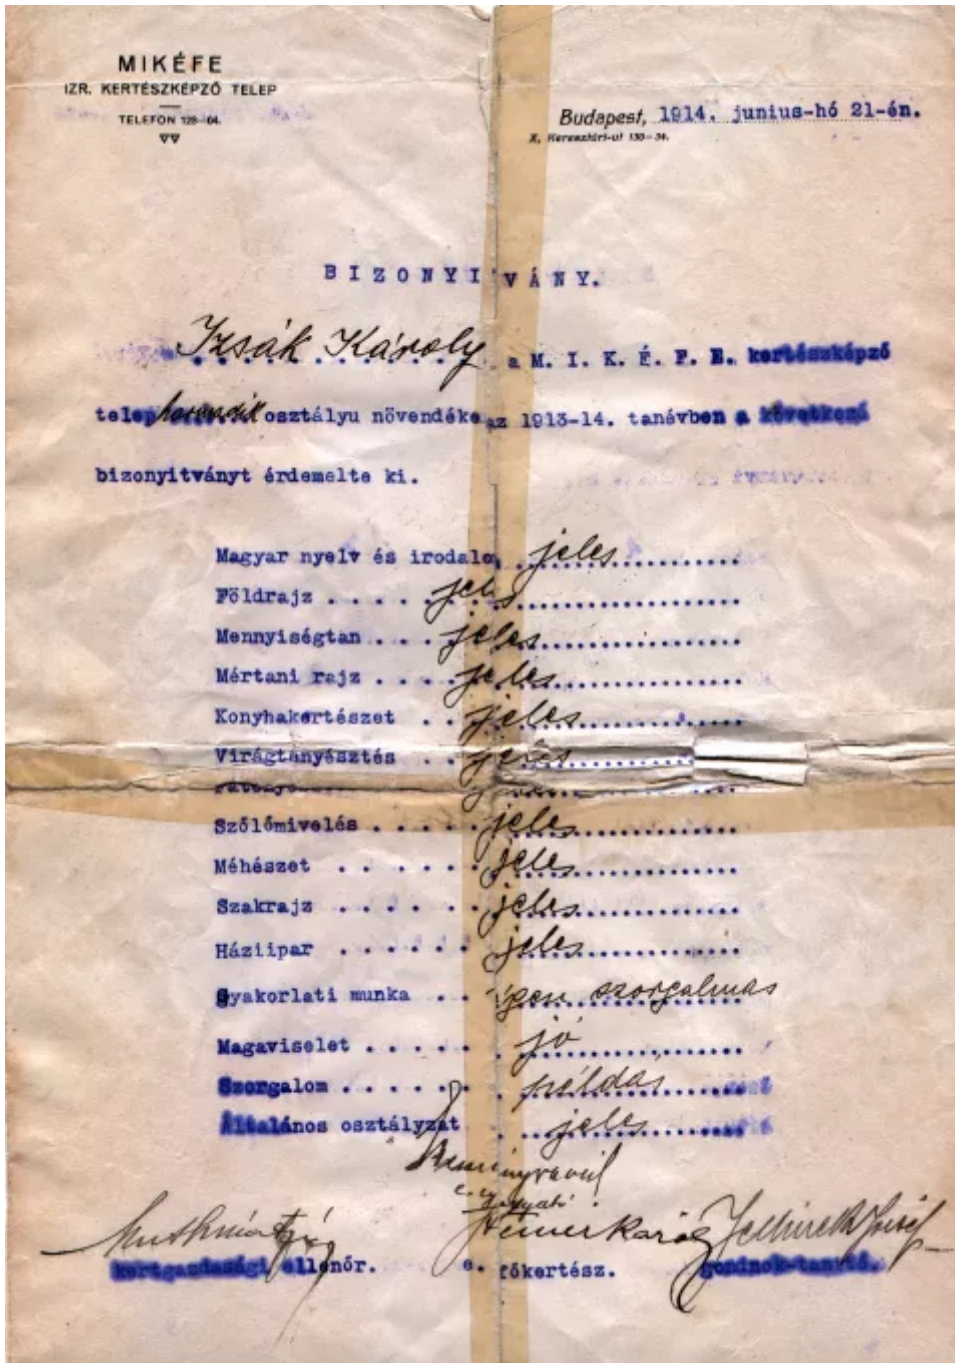 MIKÉFE
IZR. KERTÉSZKÉPZŐ TELEP
TELEFON 128-64.
Budapest, 1914. junius-hó 21-én.
X, Keresztúri-ut 130-34.
BIZONYITVÁNY.
Izsák Károly a M. I. K. É. F. E. kertészképző
telep harmadik osztályu növendéke az 1913-14. tanévben a következő
bizonyitványt érdemelte ki.
Magyar nyelv és irodalo jeles
Földrajz . . . . jeles
Mennyiségtan . . . jeles
Mértani rajz . . . jeles
Konyhakertészet . . jeles
Virágtenyésztés . . jeles
Szőlőmivelés . . . . . jeles
Méhészet . . . . . jeles
Szakrajz . . . . . jeles
Háziipar . . . . . . jeles
Gyakorlati munka . . igen szorgalmas
Magaviselet . . . . . jó
Szorgalom . . . . . . példás
Általános osztályzat . jeles
kertgazdasági ellenőr. e. főkertész. gondnok-tanító.